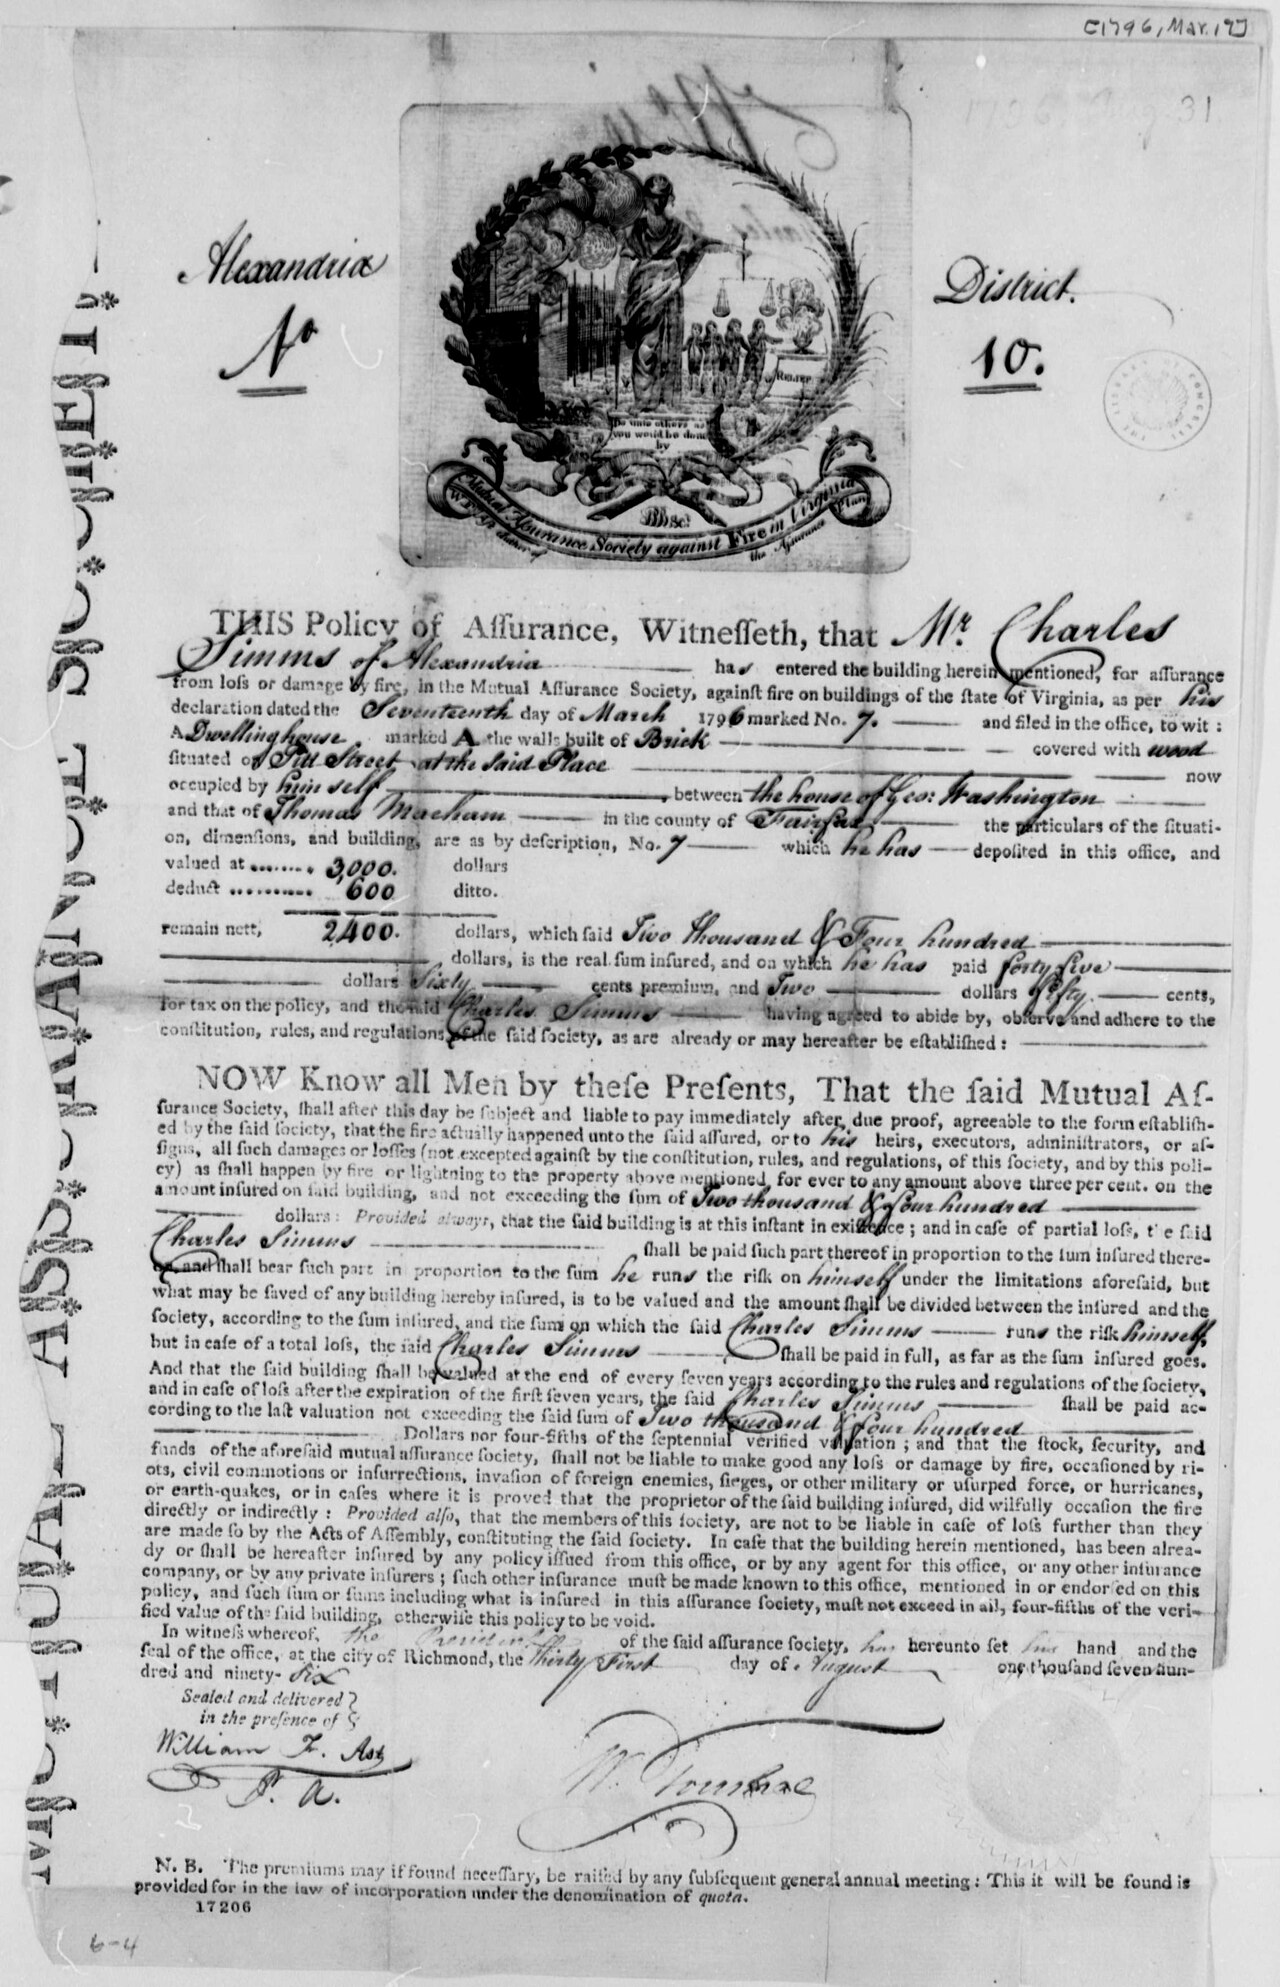 [1796, Mar. 17]
1796 Aug. 31
Alexandria
District.
No
10.
THE LIBRARY OF CONGRESS
RELIEF
Do unto others as
you would be done
by
Mutual Assurance Society against Fire in Virginia
W. F. Ast
the Assurance Plan
MUTUAL ASSURANCE SOCIETY
THIS Policy of Aſſurance, Witneſſeth, that Mr. Charles
Simms of Alexandria has entered the building herein mentioned, for aſſurance
from loſs or damage by fire, in the Mutual Aſſurance Society, againſt fire on buildings of the ſtate of Virginia, as per his
declaration dated the Seventeenth day of March 1796 marked No. 7. and filed in the office, to wit:
A Dwelling house marked A the walls built of Brick covered with wood
ſituated on Pitt Street at the said Place now
occupied by him self, between the house of Geo: Washington
and that of Thomas in the county of Fairfax the particulars of the ſituati-
on, dimenſions, and building, are as by deſcription, No. 7 which he has depoſited in this office, and
valued at ........ 3,000. dollars
deduct .......... 600 ditto.
remain nett, 2,400. dollars, which ſaid Two thousand & Four hundred
dollars, is the real ſum inſured, and on which he has paid forty five
dollars Sixty cents premium, and Two dollars fifty cents,
for tax on the policy, and the ſaid Charles Simms having agreed to abide by, obſerve and adhere to the
conſtitution, rules, and regulations of the ſaid ſociety, as are already or may hereafter be eſtabliſhed:
NOW Know all Men by theſe Preſents, That the ſaid Mutual Aſ-
ſurance Society, ſhall after this day be ſubject and liable to pay immediately after due proof, agreeable to the form eſtabliſh-
ed by the ſaid ſociety, that the fire actually happened unto the ſaid aſſured, or to his heirs, executors, adminiſtrators, or aſ-
ſigns, all ſuch damages or loſſes (not excepted againſt by the conſtitution, rules, and regulations, of this ſociety, and by this poli-
cy) as ſhall happen by fire or lightning to the property above mentioned, for ever to any amount above three per cent. on the
amount inſured on ſaid building, and not exceeding the ſum of Two thousand & four hundred
dollars: Provided always, that the ſaid building is at this inſtant in exiſtence; and in caſe of partial loſs, the ſaid
Charles Simms ſhall be paid ſuch part thereof in proportion to the ſum inſured there-
on, and ſhall bear ſuch part in proportion to the ſum he runs the riſk on himself under the limitations aforeſaid, but
what may be ſaved of any building hereby inſured, is to be valued and the amount ſhall be divided between the inſured and the
ſociety, according to the ſum inſured, and the ſum on which the ſaid Charles Simms runs the riſk himself,
but in caſe of a total loſs, the ſaid Charles Simms ſhall be paid in full, as far as the ſum inſured goes.
And that the ſaid building ſhall be valued at the end of every ſeven years according to the rules and regulations of the ſociety,
and in caſe of loſs after the expiration of the firſt ſeven years, the ſaid Charles Simms ſhall be paid ac-
cording to the laſt valuation not exceeding the ſaid ſum of Two thousand & four hundred
Dollars nor four-fifths of the ſeptennial verified valuation; and that the ſtock, ſecurity, and
funds of the aforeſaid mutual aſſurance ſociety, ſhall not be liable to make good any loſs or damage by fire, occaſioned by ri-
ots, civil commotions or inſurrections, invaſion of foreign enemies, ſieges, or other military or uſurped force, or hurricanes,
or earth-quakes, or in caſes where it is proved that the proprietor of the ſaid building inſured, did wilfully occaſion the fire
directly or indirectly: Provided alſo, that the members of this ſociety, are not to be liable in caſe of loſs further than they
are made ſo by the Acts of Aſſembly, conſtituting the ſaid ſociety. In caſe that the building herein mentioned, has been alrea-
dy or ſhall be hereafter inſured by any policy iſſued from this office, or by any agent for this office, or any other inſurance
company, or by any private inſurers; ſuch other inſurance muſt be made known to this office, mentioned in or endorſed on this
policy, and ſuch ſum or ſums including what is inſured in this aſſurance ſociety, muſt not exceed in all, four-fifths of the veri-
fied value of the ſaid building, otherwiſe this policy to be void.
In witneſs whereof, the President of the ſaid aſſurance ſociety, has hereunto ſet his hand and the
ſeal of the office, at the city of Richmond, the Thirty First day of August one thouſand ſeven hun-
dred and ninety- Six
Sealed and delivered
in the preſence of
William F. Ast
P. A.
W.
N. B. The premiums may if found neceſſary, be raiſed by any ſubſequent general annual meeting: This it will be found is
provided for in the law of incorporation under the denomination of quota.
17206
6-4